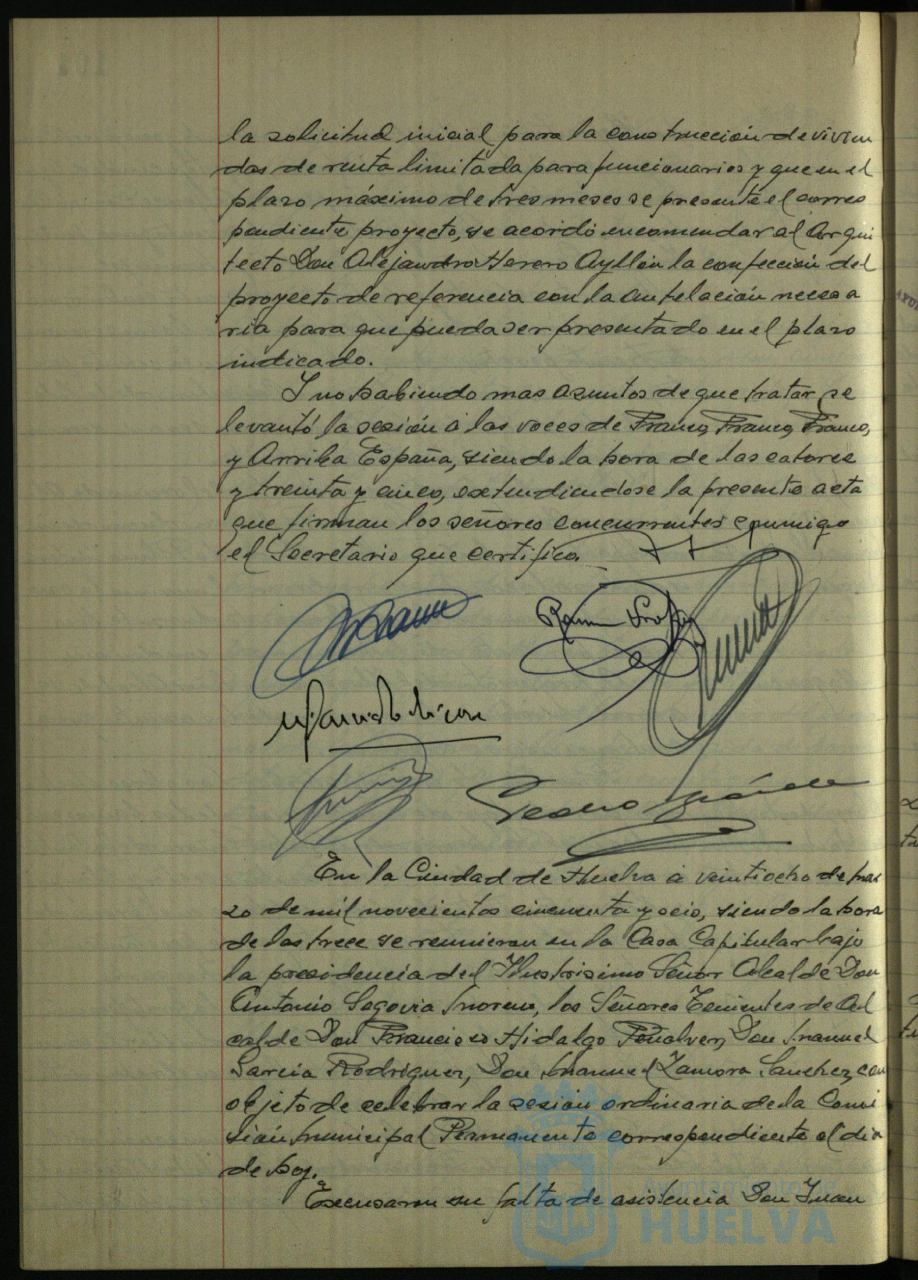 la solicitud inicial para la construcción de vivien
das de renta limitada para funcionarios y que en el
plazo máximo de tres meses se presente el corres
pondiente proyecto, se acordó encomendar al Arqui
tecto Don Alejandro Herero Ayllón la confección del
proyecto de referencia con la antelación necesa
ria para que pueda ser presentado en el plazo
indicado.
Y no habiendo mas asuntos de que tratar se
levantó la sesión a las voces de Franco, Franco, Franco,
y Arriba España, siendo la hora de las catorce
y treinta y cinco, extendiendose la presente acta
que firman los señores concurrentes conmigo
el Secretario que certifico.
Pedro
En la Ciudad de Huelva a veintiocho de mar
zo de mil novecientos cincuenta y ocio, siendo la hora
de las trece se reunieron en la Casa Capitular bajo
la presidencia del Ilustrisimo Señor Alcalde Don
Antonio Segovia Moreno, los Señores Tenientes de Al
calde Don Francisco Hidalgo Peñalver, Don Manuel
Garcia Rodriguez, Don Manuel Zamora Sanchez, con
objeto de celebrar la sesion ordinaria de la Comi
sión Municipal Permanente correspondiente al dia
de hoy.
Excusaron su falta de asistencia Don Juan
Ayuntamiento de
HUELVA